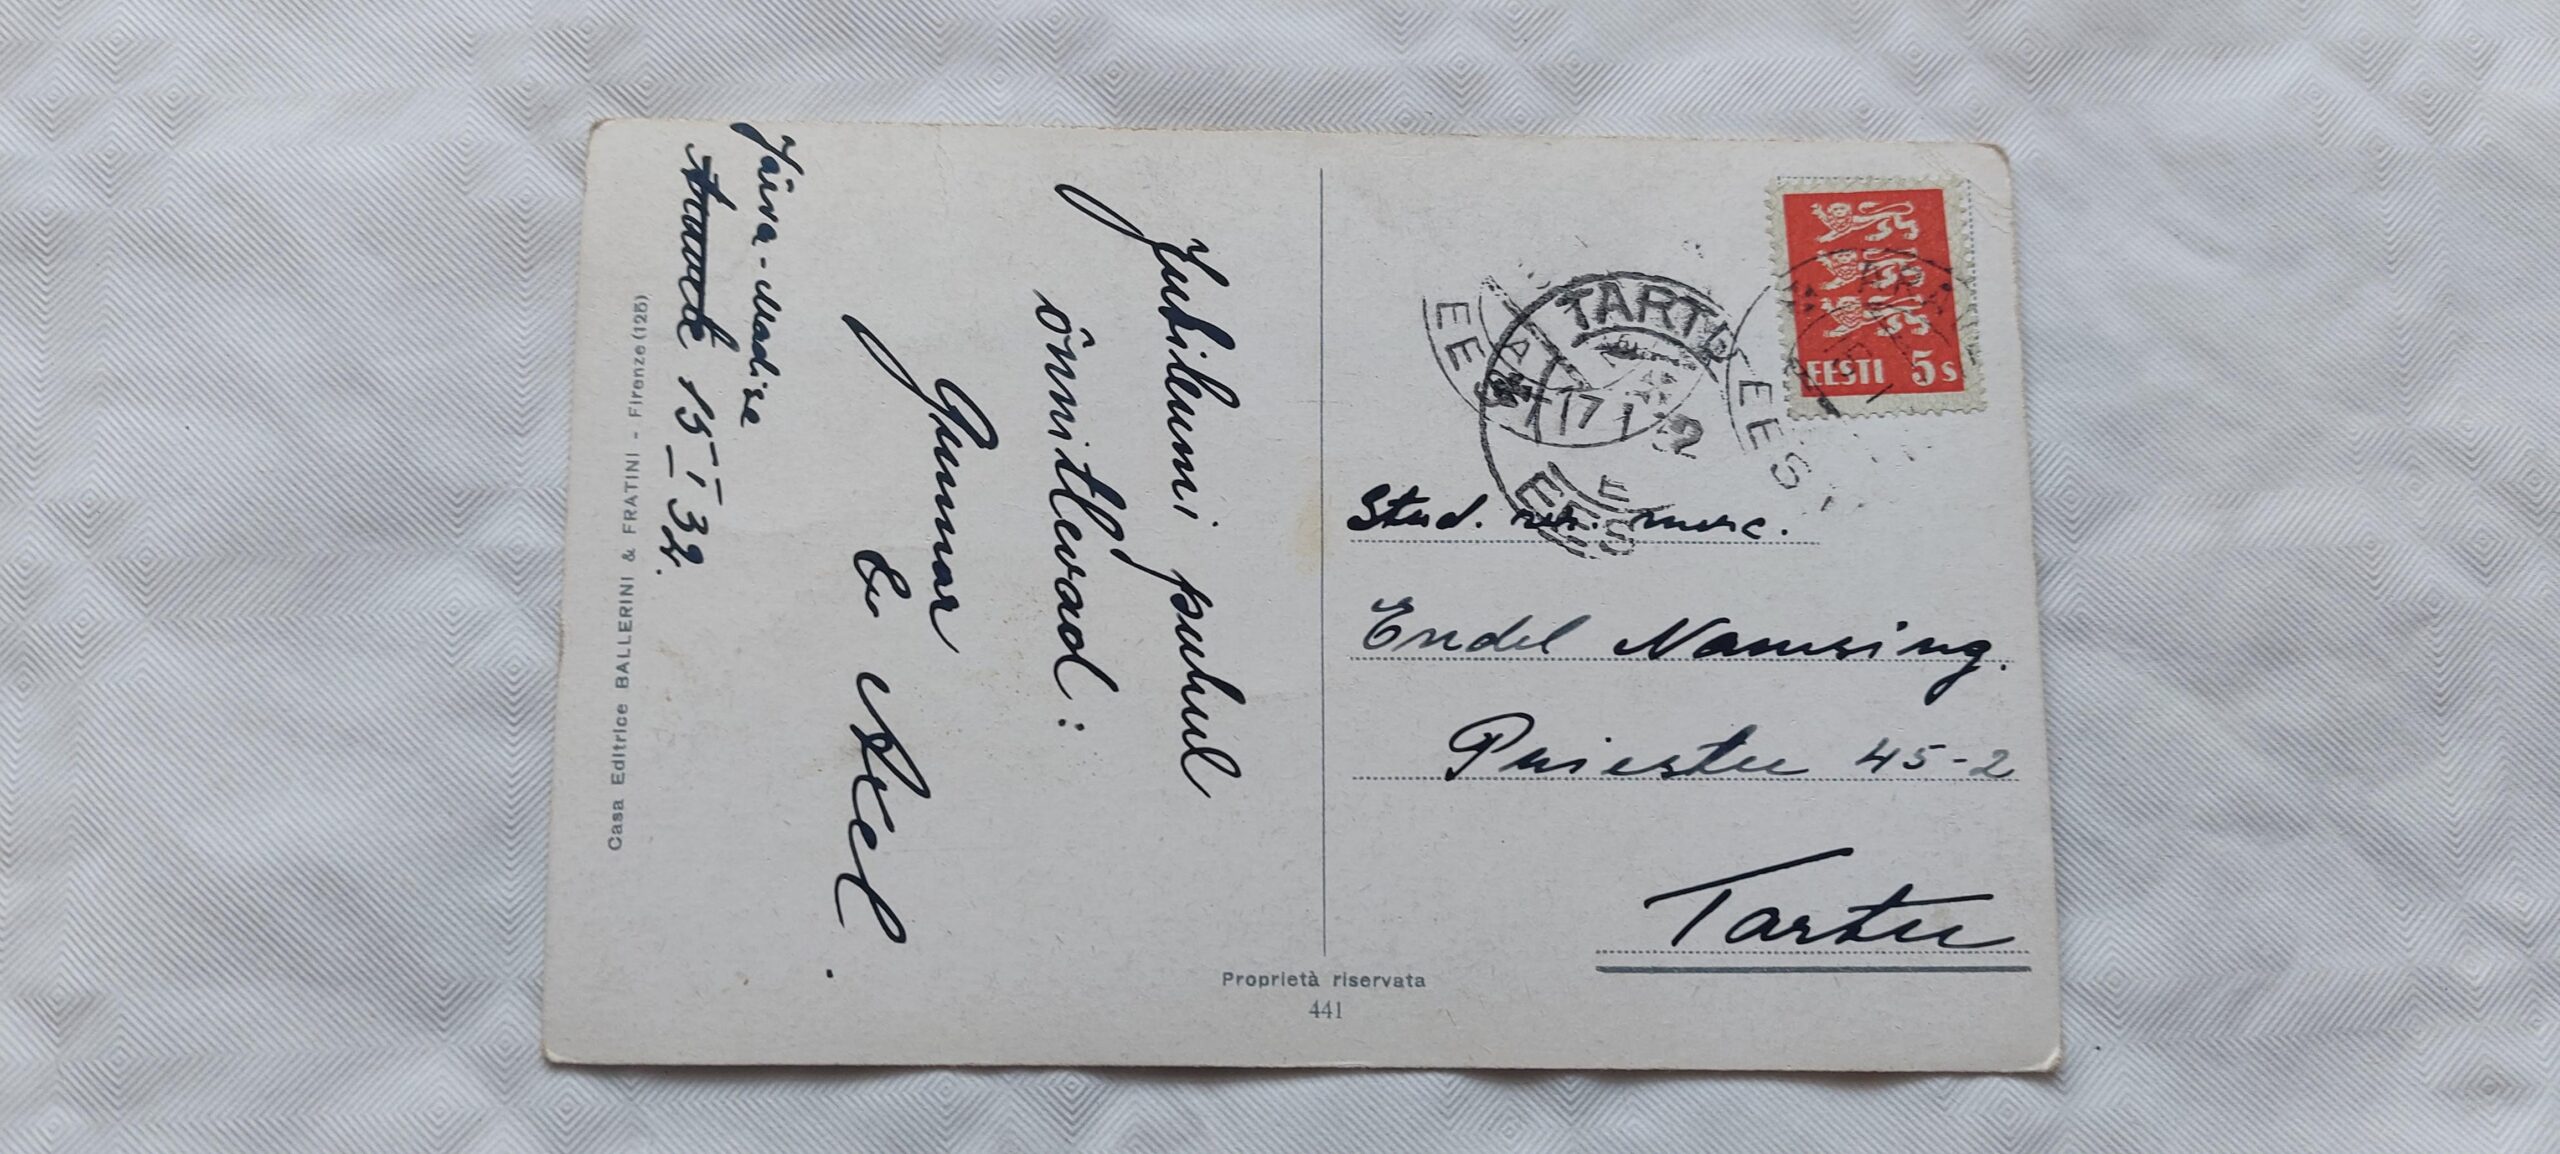 Järva-Madise
15-I-32.
Jubileumi puhul
õnnitlevad:
Gunnar
& Axel.
Casa Editrice BALLERINI & FRATINI - Firenze (125)
EESTI 5s
TARTU
EESTI
17 I 32
Stud. rer. merc.
Endel Namsing.
Puiestee 45-2
Tartu
Proprietà riservata
441